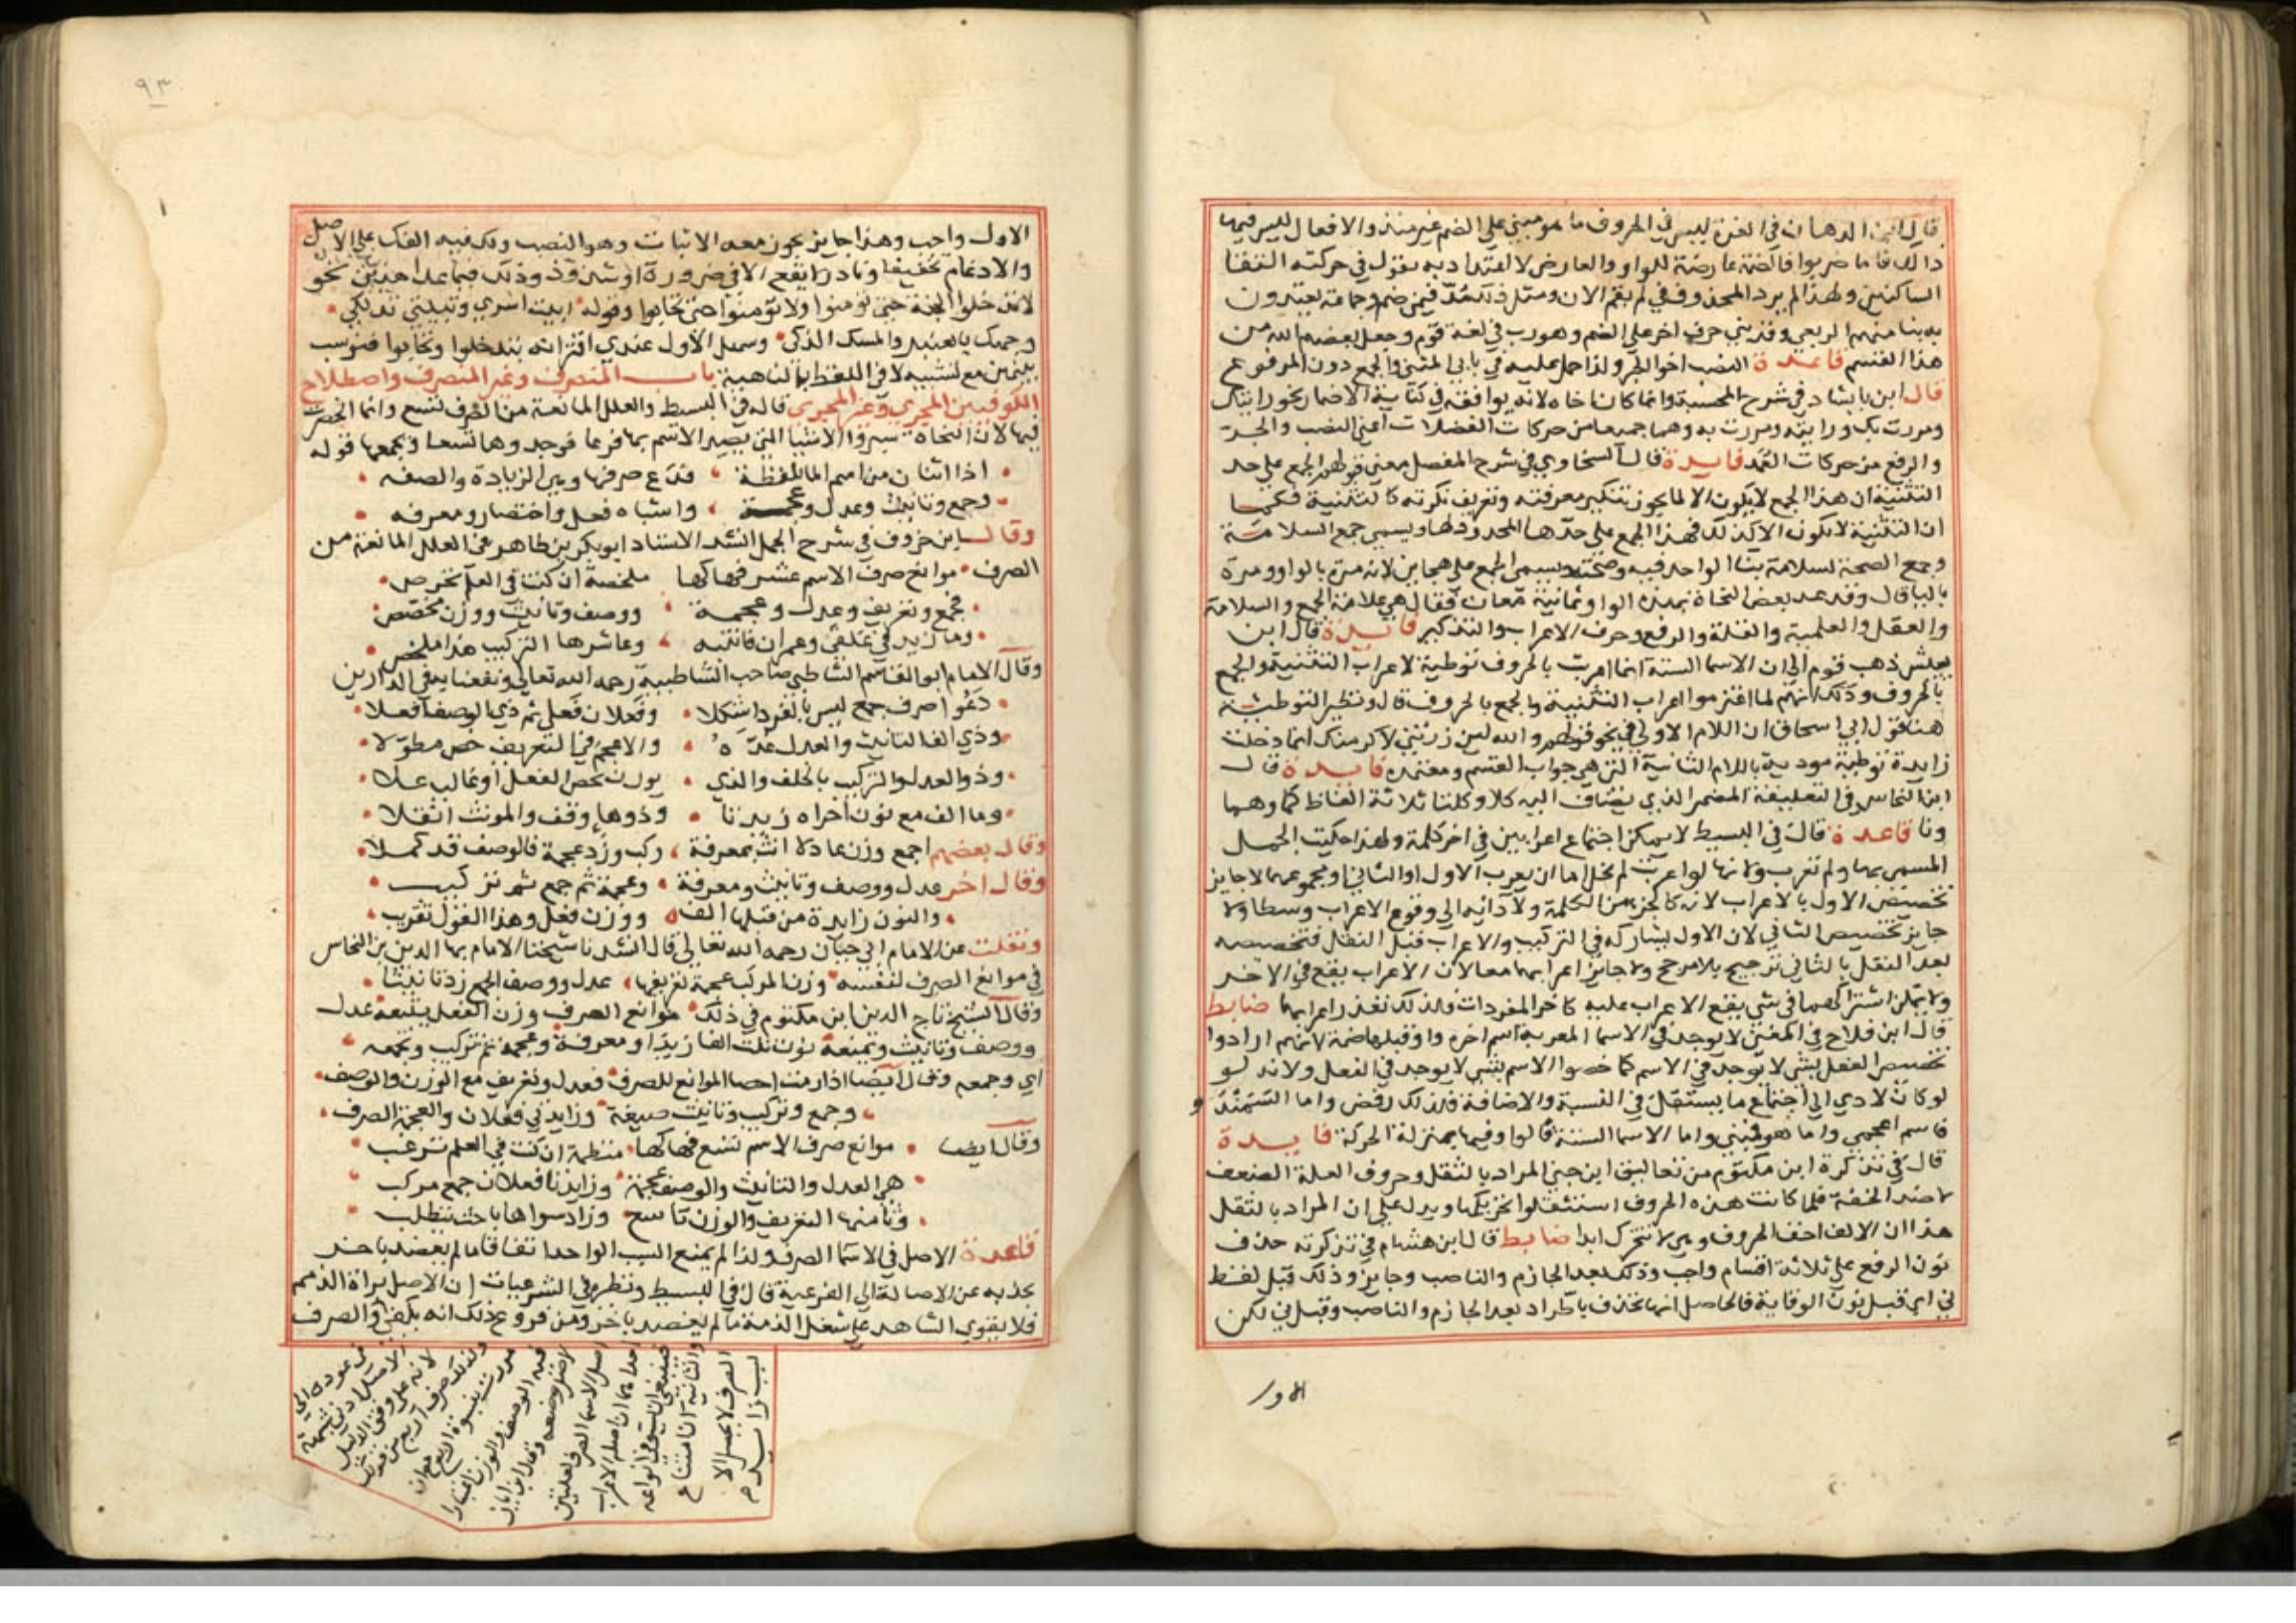 قال ابن الدهان في الغرة ليس في الحروف ما هو مبني على الضم غير منذ والافعال ليس فيها
ذلك فاما ضربوا فالضمة عارضة للواو والعارض لا اعتداد به يقول في حركته التقا
الساكنين ولهذا لم يرد المحذوف في لم يقم الان ومثل ذلك مذ فيمن ضم وجماعة يعتدون
به بنا منهم الربعي وقد بني حرف اخر على الضم وهو رب في لغة قوم وجعل بعضهم م الله من
هذا القسم قاعدة النصب اخو الجر ولذا حمل عليه في بابي المثنى والجمع دون المرفوع
قال ابن بابشاد في شرح المحسبة وانما كان اخاه لانه يوافقه في كناية الاضمار نحو رايتك
ومررت بك ورايته ومررت به وهما جميعا من حركات الفضلات اعني النصب والجر
والرفع من حركات العمد فايدة قال السخاوي في شرح المفصل معنى قولهم الجمع على حد
التثنية ان هذا الجمع لا يكون الا لما يجوز تنكير معرفته وتعريف نكرته كالتثنية فكما
ان التثنية لا تكون الا كذلك فهذا الجمع على حدها المحدود لها ويسمى جمع السلامة
وجمع الصحة لسلامة بنا الواحد فيه وصحته ويسمى الجمع على هجاين لانه مرة بالواو ومرة
باليا قال وقد عد بعض النحاة بهذه الواو ثمانية معان فقال هي علامة الجمع والسلامة
والعقل والعلمية والقلة والرفع وحرف الاعراب والتذكير فايدة قال ابن
يعيش ذهب قوم الى ان الاسما الستة انما اعربت بالحروف توطية لاعراب التثنية والجمع
بالحروف وذلك انهم لما اعتزموا اعراب التثنية والجمع بالحروف قال ونظير التوطية
هنا قول ابي اسحاق ان اللام الاولى في نحو قولهم والله لين زرتني لاكرمنك انما دخلت
زايدة توطية موذية باللام الثانية التي هي جواب القسم ومعتمده فايدة قال
ابن النحاس في التعليقة المضمر الذي يضاف اليه كلا وكلتا ثلاثة الفاظ كما وهما
ونا قاعدة قال في البسيط لا يمكن اجتماع اعرابين في اخر كلمة ولهذا حكيت الجمل
المسمى بها ولم تعرب ولانها لو اعربت لم يخل اما ان يعرب الاول او الثاني او مجموعهما لا جايز
تخصيص الاول بالاعراب لانه كالجزء من الكلمة ولادائه الى وقوع الاعراب وسطا ولا
جايز تخصيص الثاني لان الاول يشاركه في التركيب والاعراب قبل النقل فتخصيصه
بعد النقل بالثاني ترجيح بلا مرجح ولا جايز اعرابهما معا لان الاعراب يقع في الاخر
ولا يمكن اشتراكهما في شي يقع الاعراب عليه كاخر المفردات فلذلك تعذر اعرابهما ضابط
قال ابن فلاح في المغني لا يوجد في الاسما المعربة اسم اخره واو قبلها ضمة لانهم ارادوا
تخصيص الفعل بشي لا يوجد في الاسم كما خصوا الاسم بشي لا يوجد في الفعل ولانه لو
لو كان لادي الى اجتماع ما يستثقل في النسبة والاضافة فلذلك رفض واما السمندو
فاسم اعجمي واما هو فمبني واما الاسما الستة فالواو فيها بمنزلة الحركة فايدة
قال في تذكرة ابن مكتوم من تعاليق ابن جني المراد بالثقل وحروف العلة الضعف
لا ضد الخفة فلما كانت هذه الحروف استثقلوا تحريكها ويدل على ان المراد بالثقل
هذا ان الالف اخف الحروف وهي لا تتحرك ابدا ضابط قال ابن هشام في تذكرته حذف
نون الرفع على ثلاثة اقسام واجب وذلك بعد الجازم والناصب وجايز وذلك قبل لفظ
ني اي قبل نون الوقاية فالحاصل انها تحذف باطراد بعد الجازم والناصب وقبل ني لكن
الاول
٩٣
الاول واجب وهذا جايز يجوز معه الاثبات وهو النصب ولك فيه الفك على الاصل
والادغام تخفيفا ونادر لا يقع الا في ضرورة او شذوذ وذلك فيما عدا هذين نحو
لا تدخلوا الجنة حتى تومنوا ولا تومنوا حتى تحابوا وقوله ابيت اسري وتبيتي تدلكي
وجهك بالعنبر والمسك الذكي وسهل الاول عندي اقترانه بتدخلوا وتحابوا فنوسب
بينهن مع تشبيه لا في اللفظ بالناهية باب المنصرف وغير المنصرف واصطلاح
الكوفيين المجري وغير المجري قال في البسيط والعلل المانعة من الصرف تسع وانما انحصرت
فيها لان النحاة سبروا الاشيا التي يصير الاسم بها فرعا فوجدوها تسعا ويجمعها قوله
اذا اثنان من اسم المالمفظة فدع صرفها وهي الزيادة والصفه
وجمع وتانيث وعدل وعجمة واشباه فعل واختصار ومعرفه
وقال ابن خروف في شرح الجمل انشد الاستاذ ابو بكر بن طاهر في العلل المانعة من
الصرف موانع صرف الاسم عشر فهاكها ملخصة ان كنت في العلم تحرص
فجمع وتعريف وعدل وعجمة ووصف وتانيث ووزن مخصص
وما زيد في علقى وعمران فانتبه وعاشرها التركيب هذا ملخص
وقال الامام ابو القاسم الشاطبي صاحب الشاطبية رحمه الله تعالى ونفعنا به في الدارين
دعوا صرف جمع ليس بالفرد اشكلا وفعلان فعلى ثم ذي الوصف افعلا
وذي الف التانيث والعدل عده والاعجم في التعريف خص مطولا
وذو العدل والتركيب بالخلف والذي بوزن يخص الفعل او غالب علا
وما الف مع نون اخراه زيدتا وذو هاء وقف والمونث اثقلا
وقال بعضهم اجمع وزن عادلا انث بمعرفة ركب وزد عجمة فالوصف قد كملا
وقال اخر عدل ووصف وتانيث ومعرفة وعجمة ثم جمع ثم تركيب
والنون زايدة من قبلها الف ووزن فعل وهذا القول تقريب
ونقلت عن الامام ابي حيان رحمه الله تعالى قال انشدنا شيخنا الامام بها الدين بن النحاس
في موانع الصرف لنفسه وزن المركب عجمة تعريفها عدل ووصف الجمع زد تانيثا
وقال الشيخ تاج الدين ابن مكتوم في ذلك موانع الصرف وزن الفعل يتبعه عدل
ووصف وتانيث وتمنعه نون تلت الفا زيدا ومعرفة وعجمة ثم تركيب وتجمعه
اي وجمعه وقال ايضا اذا رمت احصا الموانع للصرف فعدل وتعريف مع الوزن والوصف
وجمع وتركيب وتانيث صيغة وزايدتي فعلان والعجمة الصرف
وقال ايضا موانع صرف الاسم تسع فهاكها منظمة ان كنت في العلم ترغب
هي العدل والتانيث والوصف عجمة وزايدتا فعلان جمع مركب
وثامنها التعريف والوزن تاسع وزاد سواها باحث يتطلب
قاعدة الاصل في الاسما الصرف ولذا لم يمنع السبب الواحد اتفاقا ما لم يعضد باخر
يجذبه عن الاصالة الى الفرعية قال في البسيط ونظيره في الشرعيات ان الاصل براة الذمم
فلا يقوى الشاهد على شغل الذمة ما لم يعتضد باخر ومن فروع ذلك انه يكفي في الصرف